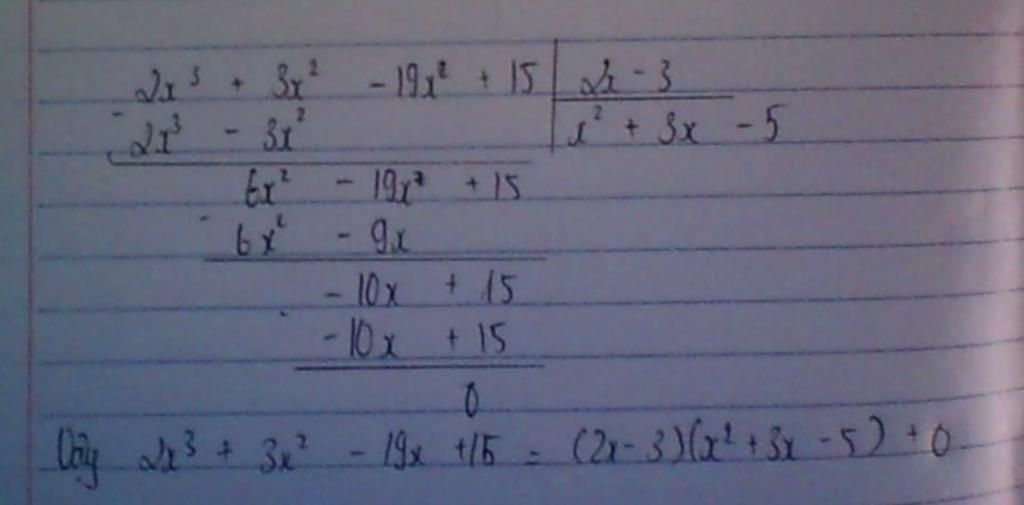 2x³ + 3x² - 19x² + 15 | 2x - 3
- 2x³ - 3x² | x² + 3x - 5
6x² - 19x² + 15
- 6x² - 9x
- 10x + 15
- - 10x + 15
0
Vậy 2x³ + 3x² - 19x + 15 = (2x - 3)(x² + 3x - 5) + 0